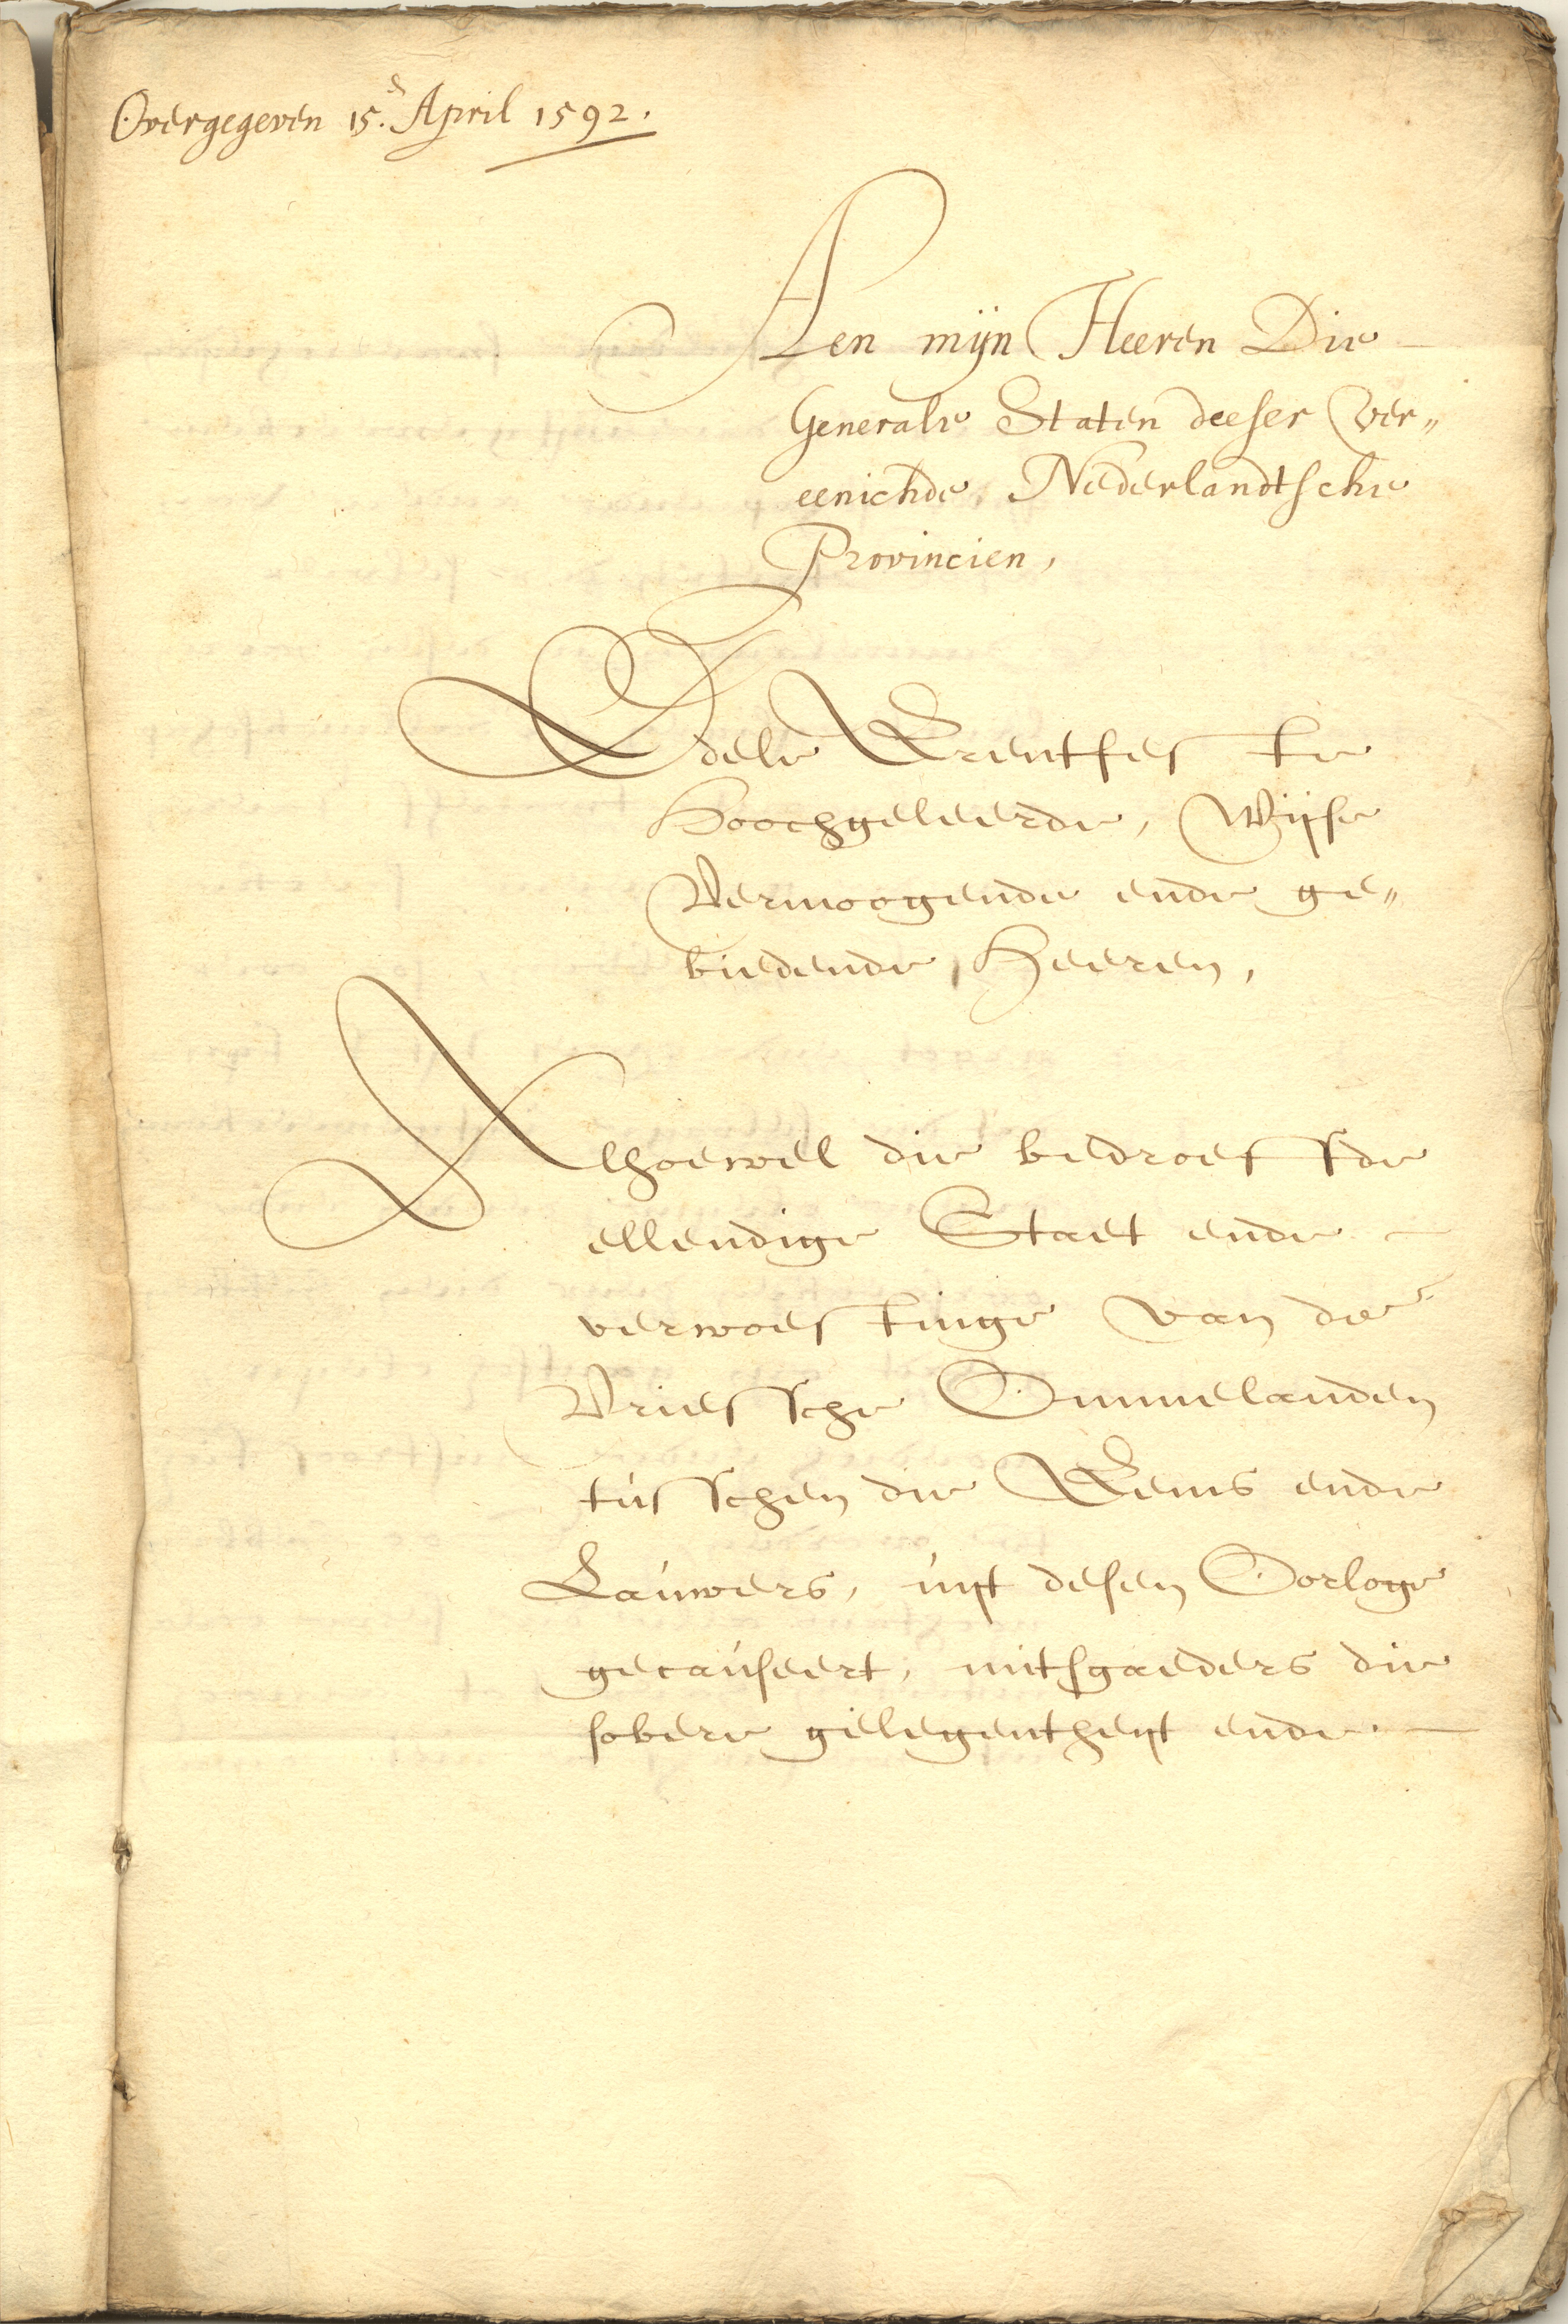 Overgegeven 15.e April 1592.
Aen mijn Heeren Die
Generale Staten deeser Ver„
eenichde Nederlandtsche
Provincien,
Edele Erentfeste
Hoochgeleerde, Wijse
Vermoogende ende ge„
biedende Heeren,
Alhoewel die bedroefde
ellendige Staet ende
verwoestinge van de
Vriessche Ommelanden
tusschen die Eems ende
Lauwers, uijt desen Oorloge
gecauseert, mitsgaeders die
sobere gelegentheijt ende